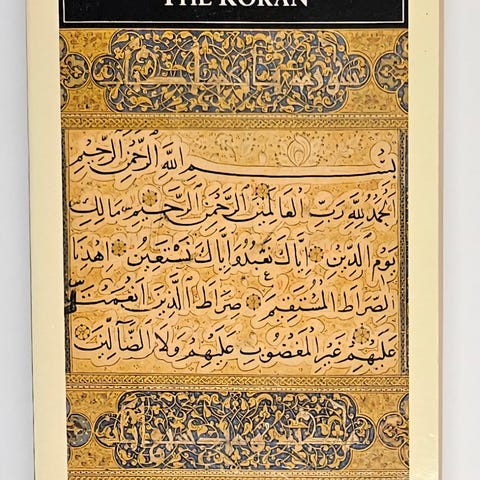 THE KORAN
بسم الله الرحمن الرحيم
الحمد لله رب العالمين الرحمن الرحيم مالك
يوم الدين إياك نعبد وإياك نستعين اهدنا
الصراط المستقيم صراط الذين أنعمت
عليهم غير المغضوب عليهم ولا الضالين